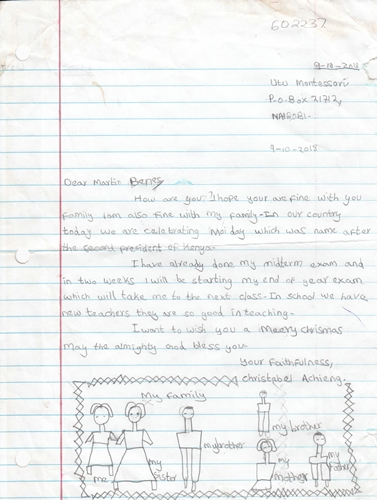 602237
9-10-2018
Uw Montessori
P.O.Box 71712,
NAIROBI.
9-10-2018
Dear Martin Benes
How are you. I hope your are fine with you
family Iam also fine with my family. In our country
today we are celebrating Moi day which was name after
the second president of Kenya.
I have already done my midterm exam and
in two weeks I will be starting my end of year exam
which will take me to the next class. In school we have
new teachers they are so good in teaching.
I want to wish you a Meerry chrismas
May the almighty God bless you.
Your Faithfulness,
christabel Achieng.
My Family
me
my sister
my brother
my brother
my mother
my Father